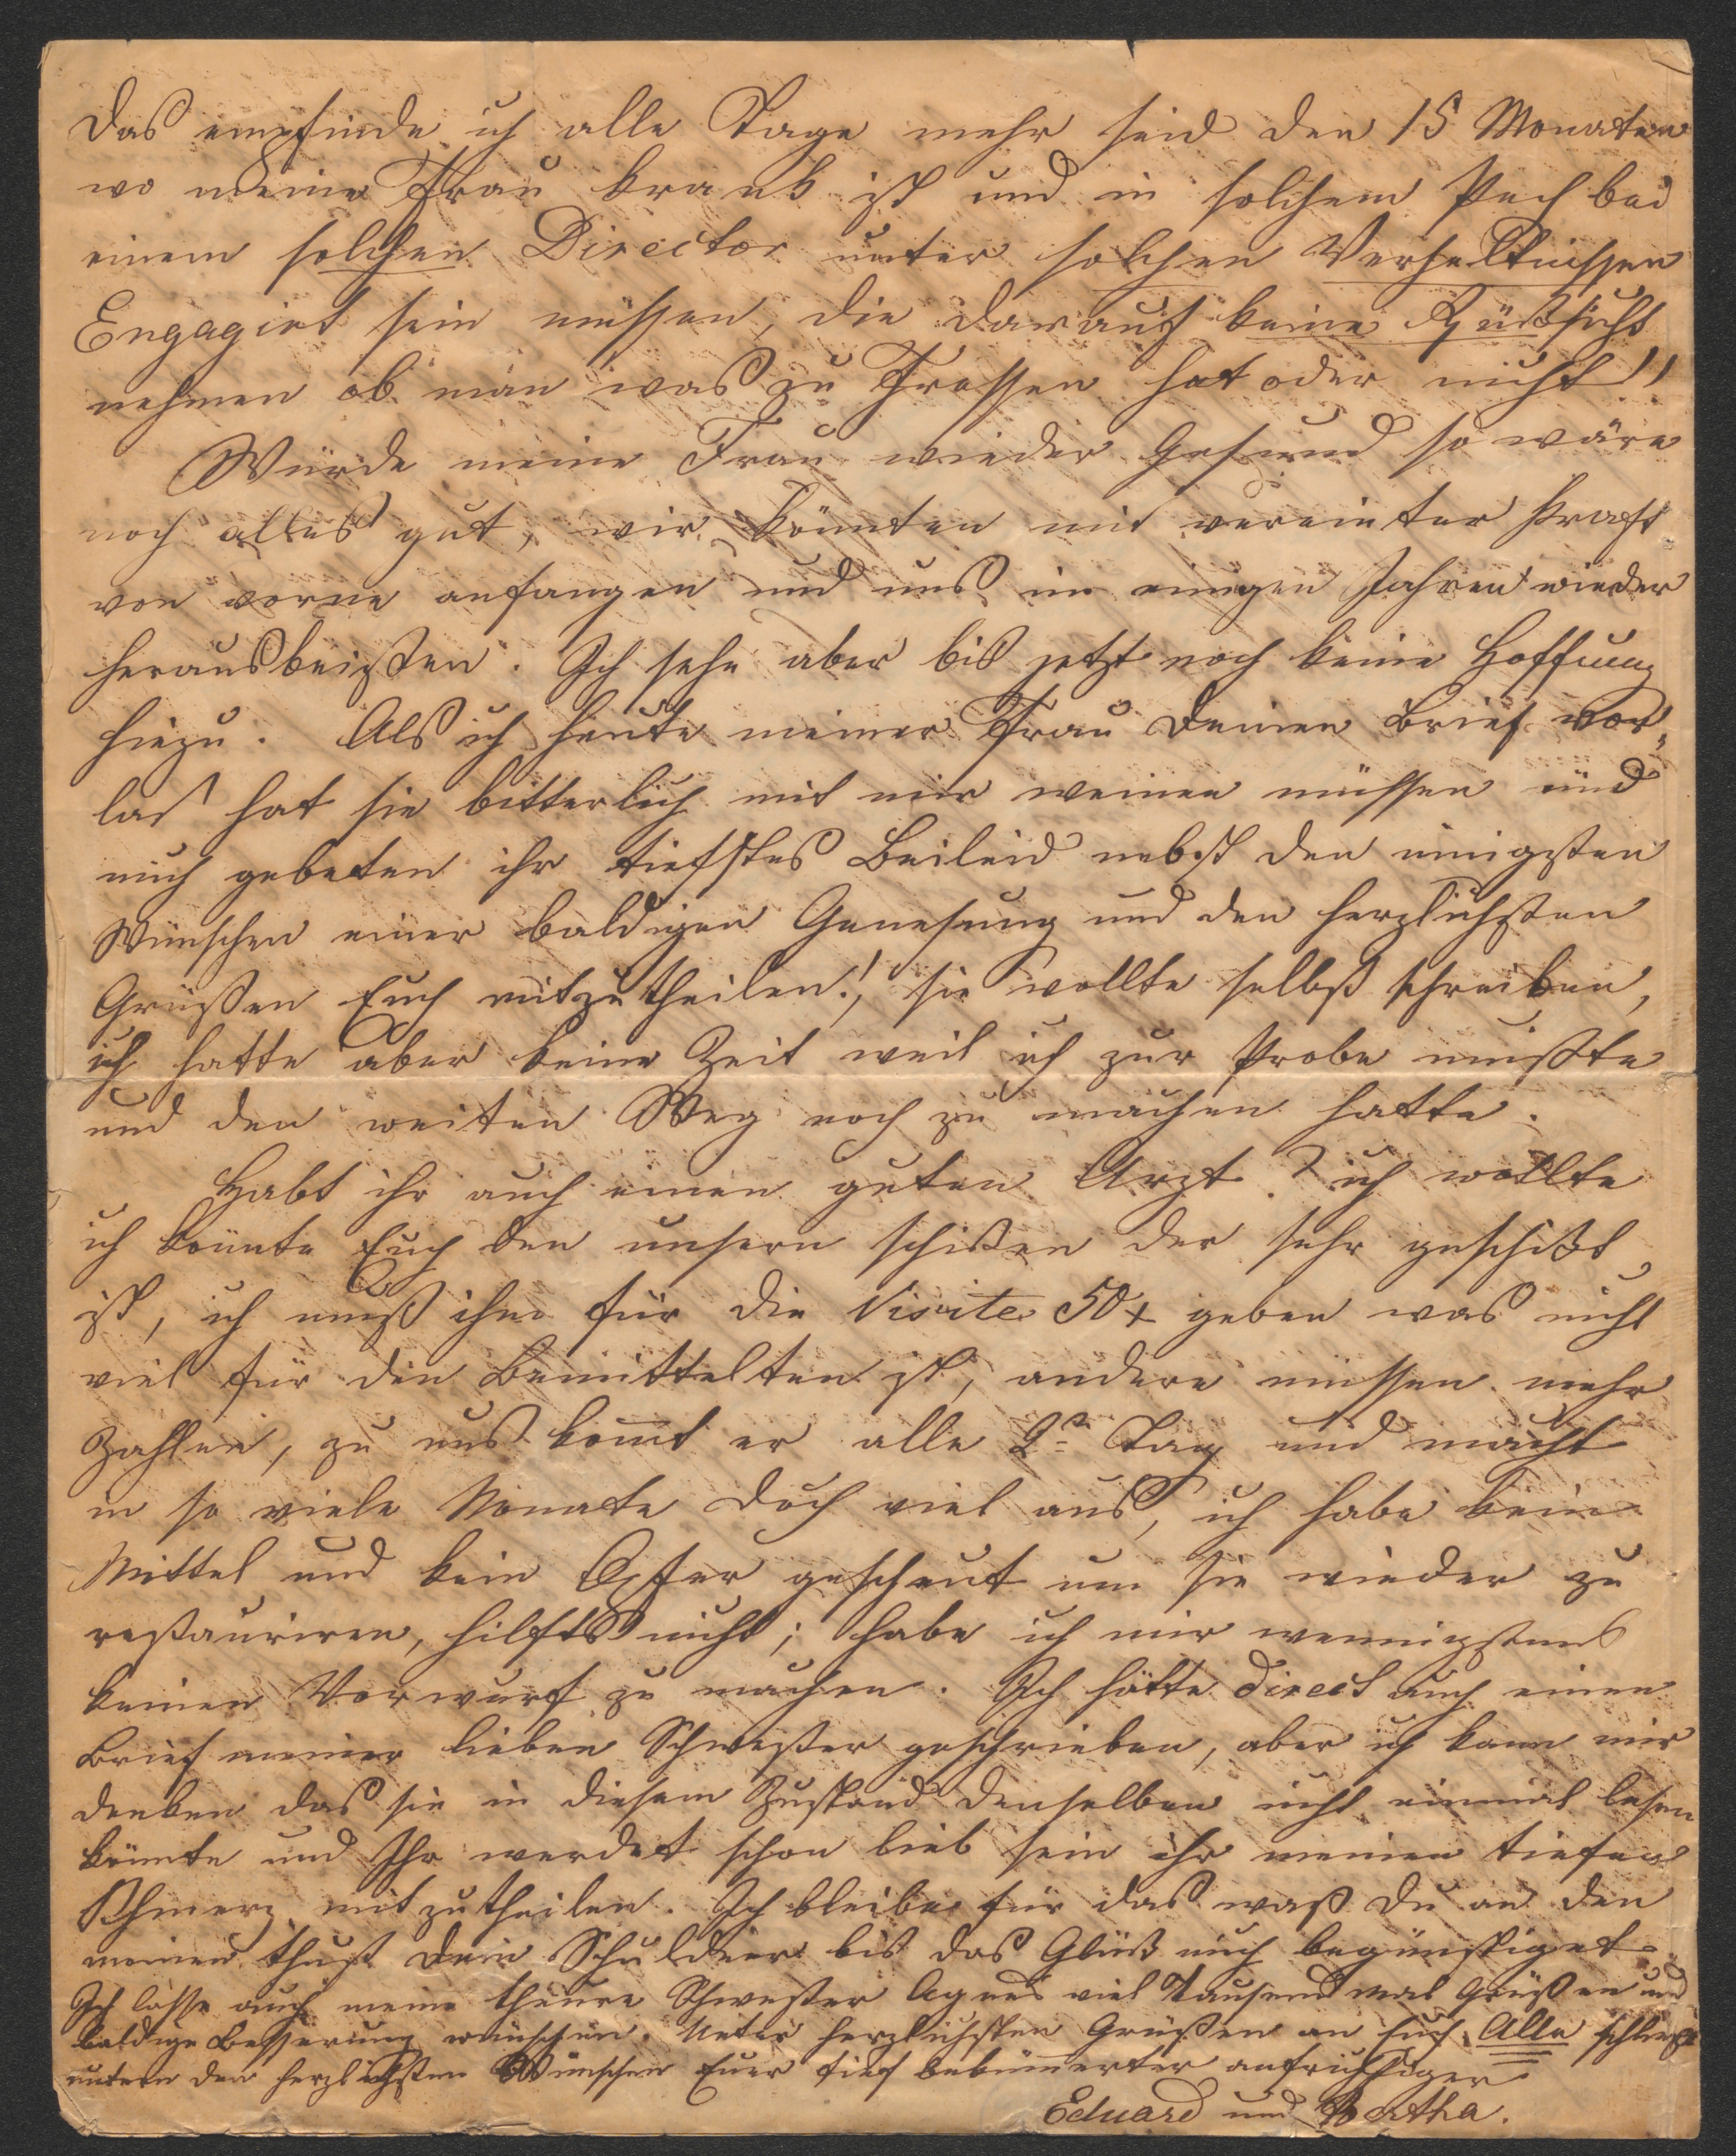 das empfinde ich alle Tage mehr seid den 15 Monaten
wo meine Frau krank ist und in solchem Pech bei
einem solchen Director unter solchen Verhältnissen
Engagirt sein müssen, die darauf keine Rücksicht
nehmen ob man was zu Fressen hat oder nicht!!
Würde meine Frau wieder Gesund so wäre
noch alles gut, wir könnten mit vereinter Kraft
von vorne anfangen und uns in einigen Jahren wieder
herausbeißen. Ich sehe aber bis jetzt noch keine Hoffnung
hiezu. Als ich heute meiner Frau Deinen Brief vor-
las hat sie bitterlich mit mir weinen müssen und
mich gebeten ihr tiefstes Beileid nebst den innigsten
Wünschen einer baldigen Genesung und den herzlichsten
Grüßen Euch mitzutheilen!, sie wollte selbst schreiben,
ich hatte aber keine Zeit weil ich zur Probe mußte
und den weiten Weg noch zu machen hatte.
Habt ihr auch einen guten Arzt? ich wollte
ich könnte Euch den unsern schicken der sehr geschickt
ist, ich muß ihm für die Visite 50 x geben was nicht
viel für den Bemittelten ist, andere müssen mehr
Zahlen, zu uns kom̅t er alle 2ⁿ Tag und macht
in so viele Monate doch viel aus, ich habe kein
Mittel und kein Opfer gescheut um sie wieder zu
restauriren, hilfts nicht; habe ich mir wenigstens
keinen Vorwurf zu machen. Ich hätte direct auch einen
Brief meiner lieben Schwester geschrieben, aber ich kann mir
denken das sie in diesem Zustand denselben nicht einmal lesen
könnte und Ihr werdet schon lieb sein ihr meinen tiefen
Schmerz mitzutheilen. Ich bleibe für das waß Du an den
meinen thust Dein Schuldner bis das Glück mich begünstiget.
Ich lasse auch meine theure Schwester Agnes viel Tausend mal Grüßen und
baldige Besserung wünschen. Unter herzlichsten Grüßen an Euch Alle schließt
unter den herzlichsten Wünschen Euer tief bekümerter aufrichtiger
Eduard und Bertha.